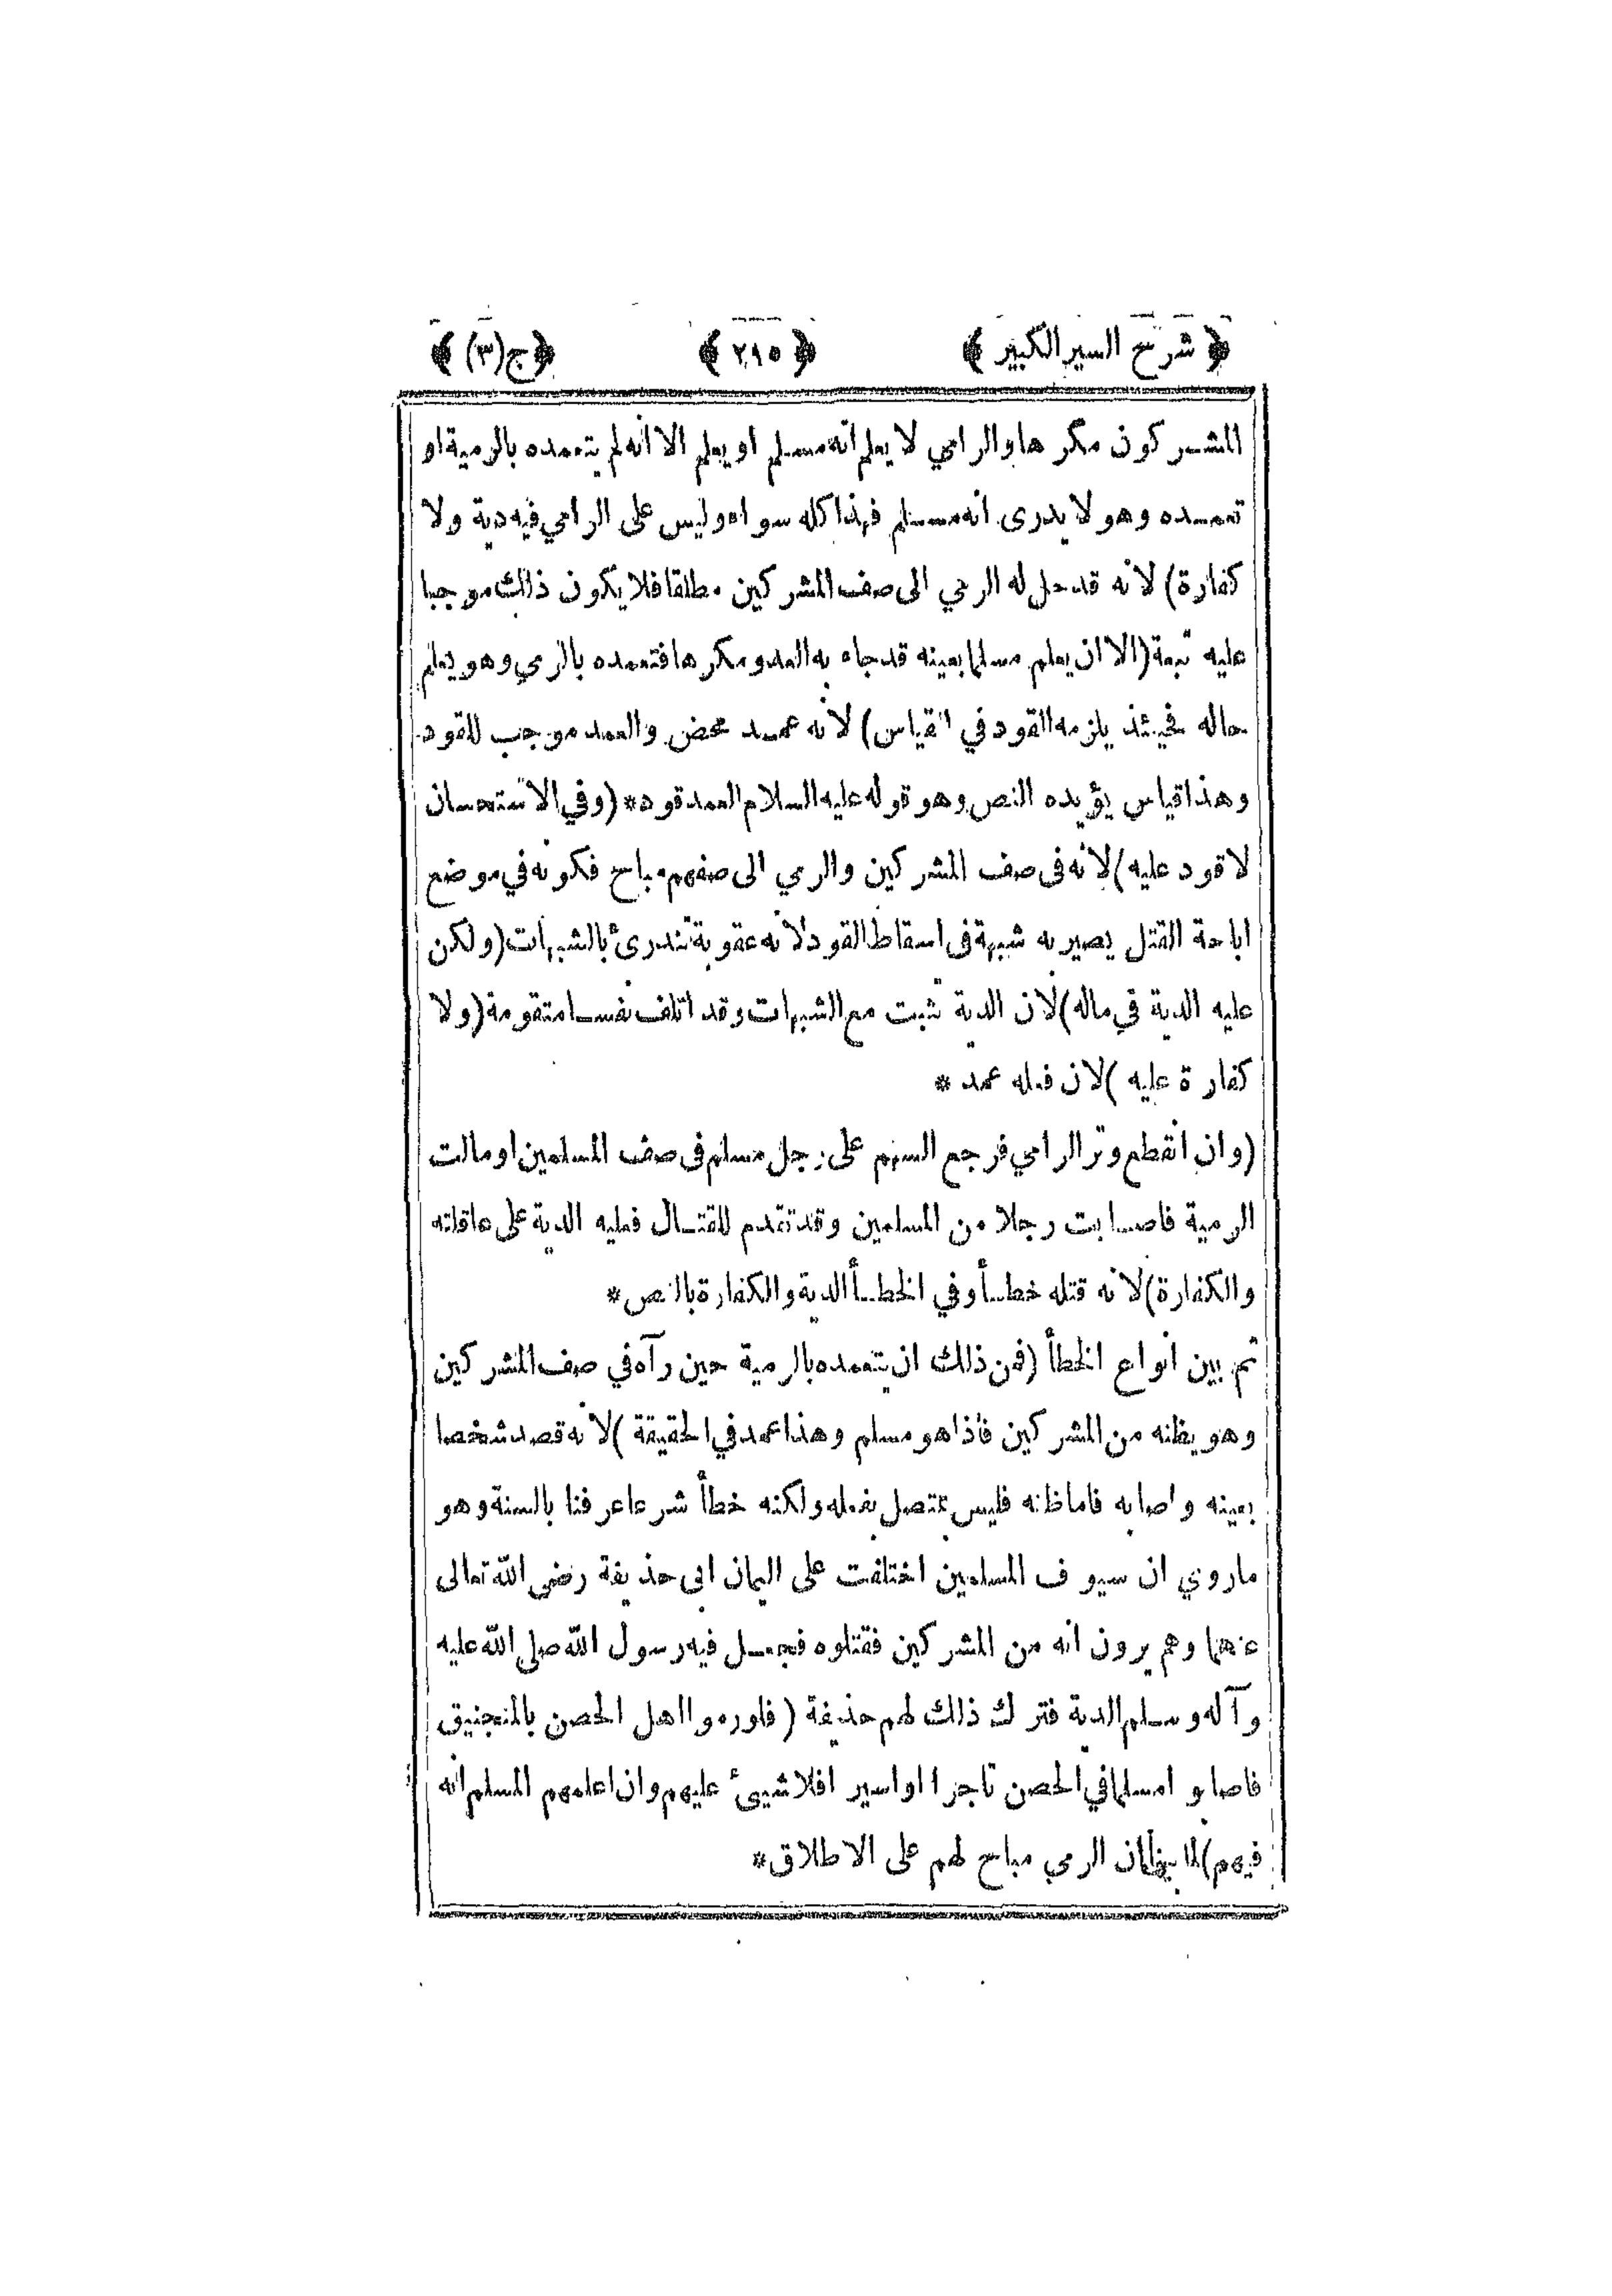 ﴿ شرح السير الكبير ﴾ ﴿ ٢١٥ ﴾ ﴿ ج (٣) ﴾
المشركون مكرها والرامي لا يعلم انه مسلم او يعلم الا انه لم يتعمده بالرمية او
تعمده وهو لا يدرى انه مسلم فهذا كله سواء وليس على الرامي فيه دية ولا
كفارة) لانه قد حل له الرمي الى صف المشركين مطلقا فلا يكون ذلك موجبا
عليه تبعة (الا ان يعلم مسلما بعينه قد جاء به العدو مكرها فتعمده بالرمي وهو يعلم
حاله فحينئذ يلزمه القود في القياس) لانه عمد محض والعمد موجب للقود
وهذا قياس يؤيده النص وهو قوله عليه السلام العمد قود* (وفي الاستحسان
لا قود عليه) لانه فى صف المشركين والرمي الى صفهم مباح فكونه في موضع
اباحة القتل يصير به شبهة فى اسقاط القود لانه عقوبة تندرئ بالشبهات (ولكن
عليه الدية في ماله) لان الدية تثبت مع الشبهات وقد اتلف نفسا متقومة (ولا
كفارة عليه) لان فعله عمد *
(وان انقطع وتر الرامي فرجع السهم على رجل مسلم فى صف المسلمين او مالت
الرمية فاصابت رجلا من المسلمين وقد تقدم للقتال فعليه الدية على عاقلته
والكفارة) لانه قتله خطأ وفي الخطأ الدية والكفارة بالنص *
ثم بين انواع الخطأ (فمن ذلك ان يتعمده بالرمية حين رآه في صف المشركين
وهو يظنه من المشركين فاذا هو مسلم وهذا عمد في الحقيقة) لانه قصد شخصا
بعينه واصابه فاما ظنه فليس بمتصل بفعله ولكنه خطأ شرعا عرفنا بالسنة وهو
ماروي ان سيوف المسلمين اختلفت على اليمان ابى حذيفة رضى الله تعالى
عنهما وهم يرون انه من المشركين فقتلوه فجعل فيه رسول الله صلى الله عليه
وآله وسلم الدية فترك ذلك لهم حذيفة (فلو رموا اهل الحصن بالمنجنيق
فاصابوا مسلما في الحصن تاجرا او اسيرا فلا شيئ عليهم وان اعلمهم المسلم انه
فيهم) لما بينا ان الرمي مباح لهم على الاطلاق *